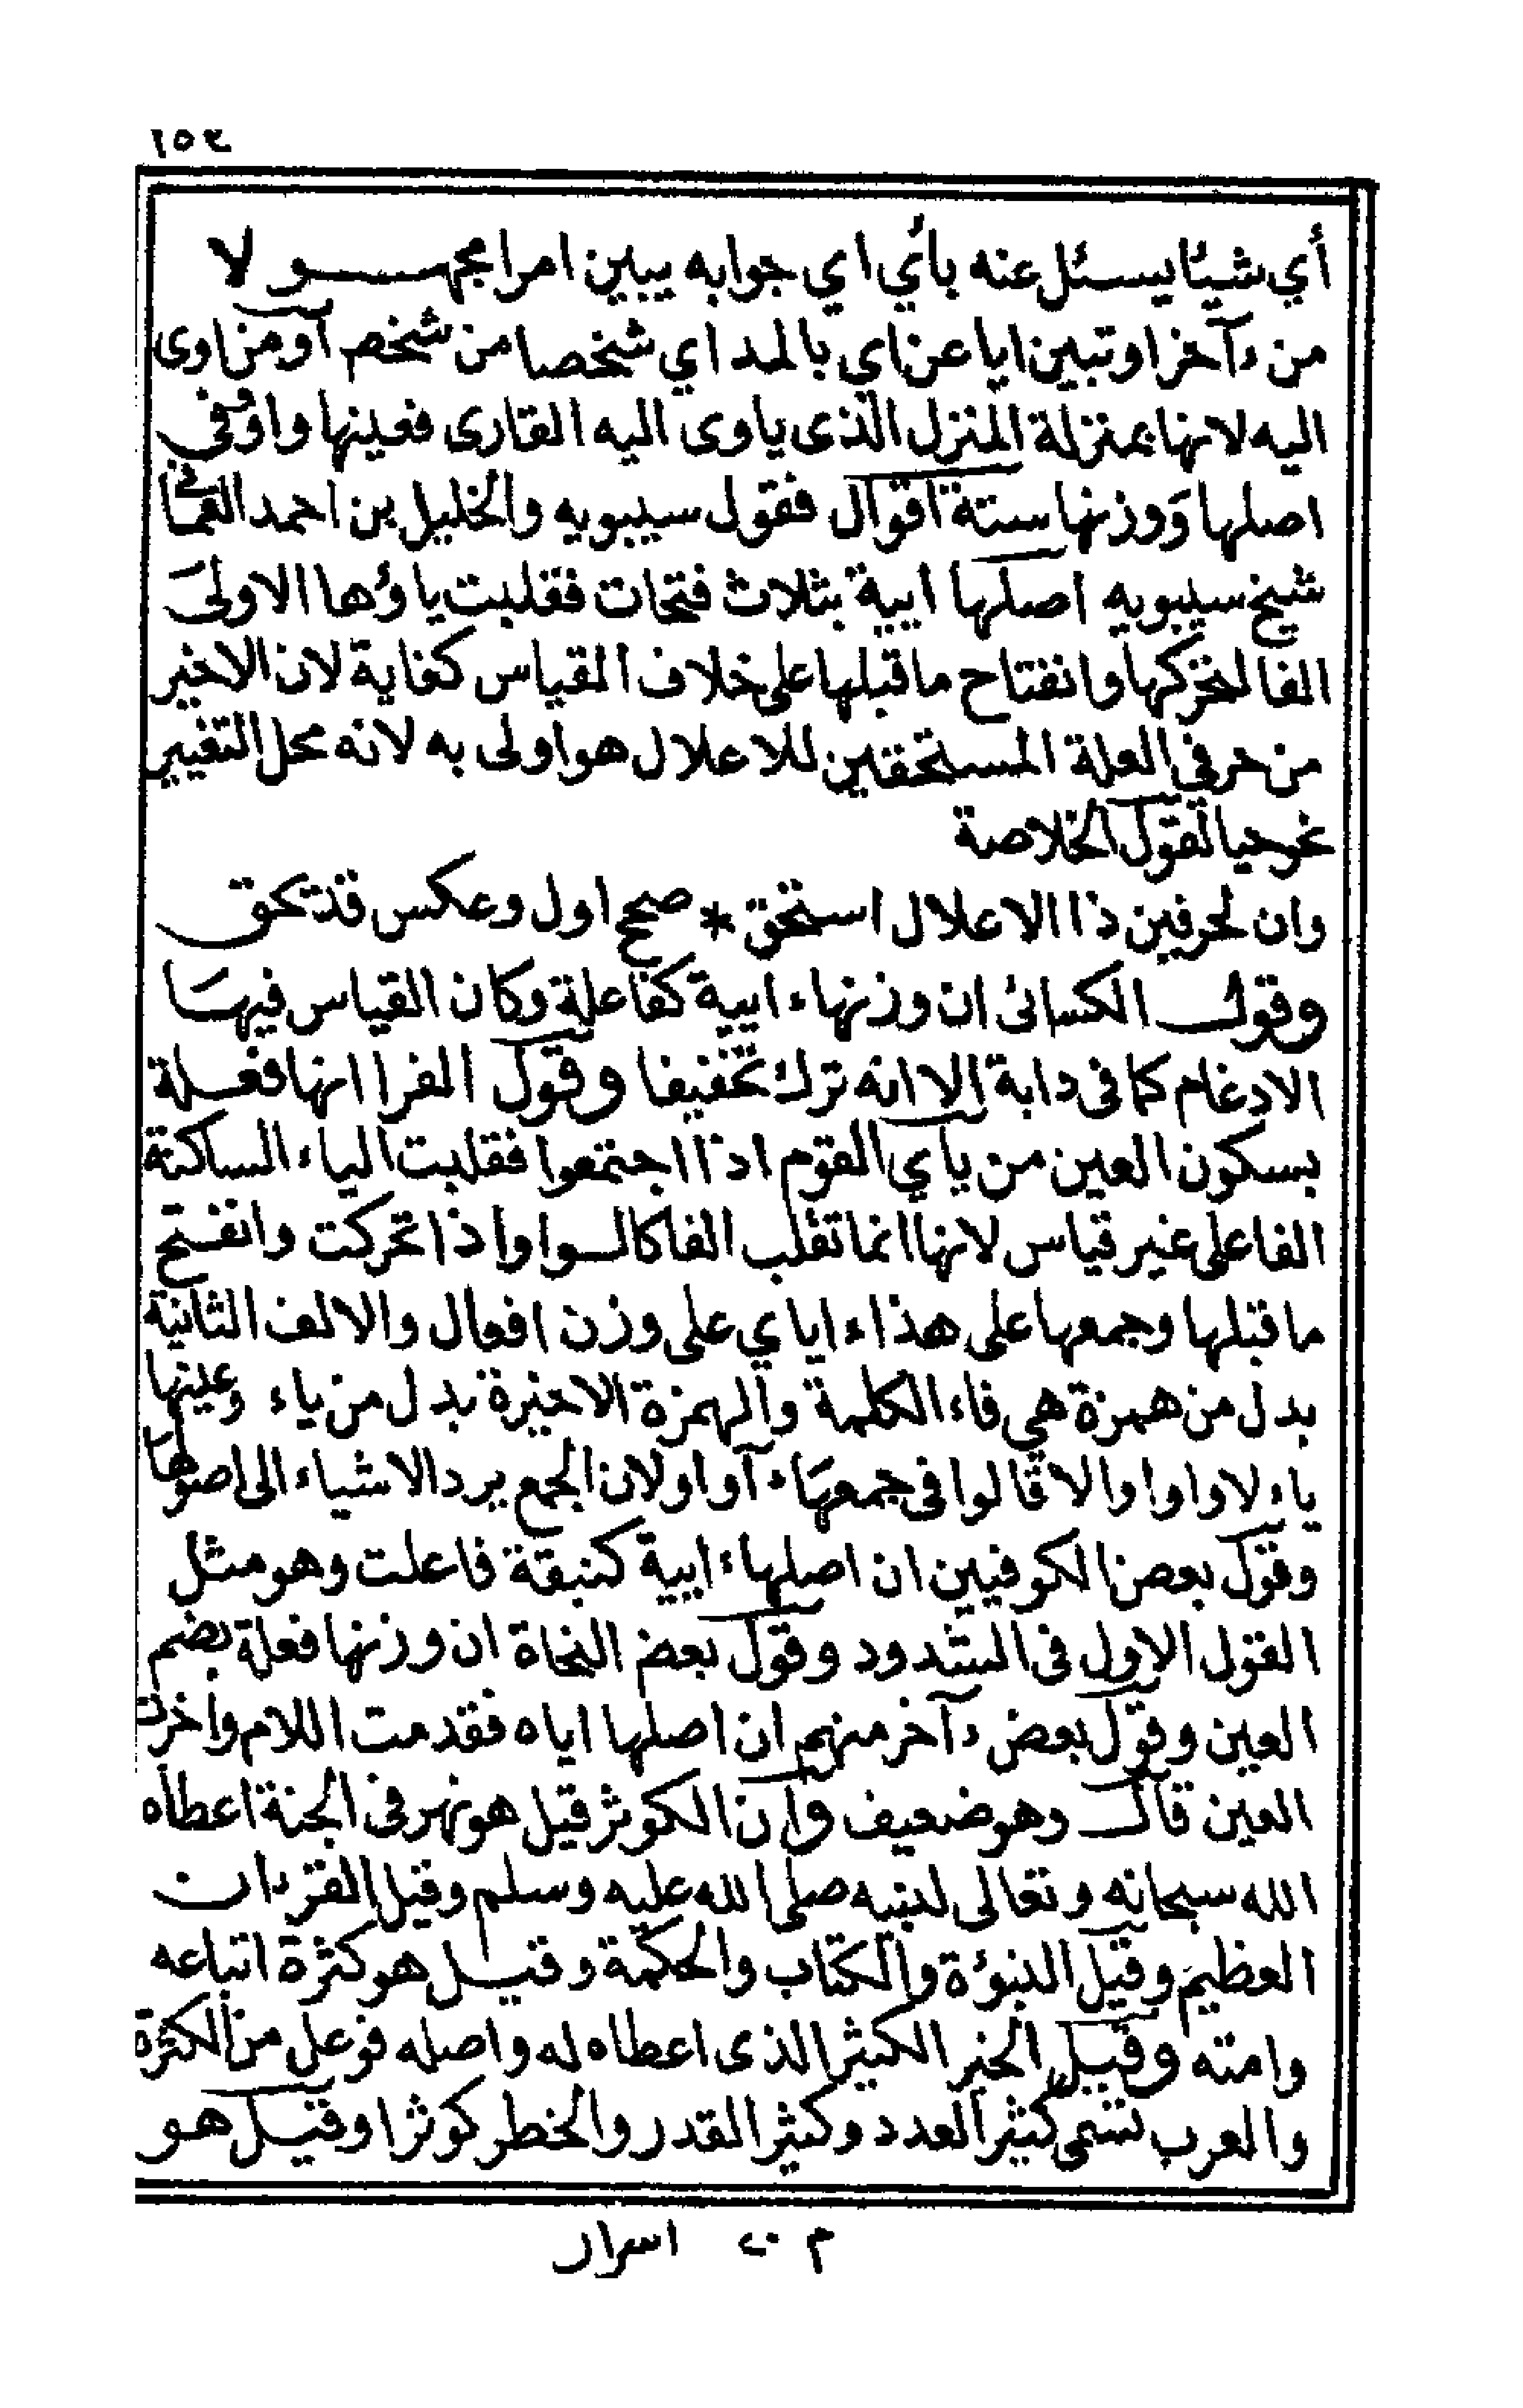 ١٥٣
أي شيئا يسئل عنه بأي اي جوابه يبين امرا مجهولا
من ءآخر او تبين ايا عن اي بالمد اي شخصا من شخص آو من اوى
اليه لانها بمنزلة المنزل الذى ياوى اليه القارى فعينها واو وفي
اصلها ووزنها ستة اقوال فقول سيبويه والخليل بن احمد
شيخ سيبويه اصلها ايية بثلاث فتحات فقلبت ياؤها الاولى
الفا لتحركها وانفتاح ما قبلها على خلاف القياس كغاية لان الاخير
من حرفي العلة المستحقين للاعلال هو اولى به لانه محل التغيير
نحو حيا لقول الخلاصة
وان لحرفين ذا الاعلال استحق * صحح اول وعكس قد يحق
وقول الكسائى ان وزنها ءايية كفاعلة وكان القياس فيها
الادغام كما فى دابة الا انه ترك تخفيفا وقول الفرا انها فعلة
بسكون العين من يأي القوم اذا اجتمعوا فقلبت الياء الساكنة
الفا على غير قياس لانها انما تقلب الفا كالواو اذا تحركت وانفتح
ما قبلها وجمعها على هذا ءاياي على وزن افعال والالف الثانية
بدل من همزة هي فاء الكلمة والهمزة الاخيرة بدل من ياء وعينها
ياء لا واو والا قالوا فى جمعها ءآواو لان الجمع يرد الاشياء الى اصولها
وقول بعض الكوفيين ان اصلها ءايية كنبقة فاعلت وهو مثل
القول الاول فى الشذوذ وقول بعض النحاة ان وزنها فعلة بضم
العين وقول بعض ءآخر منهم ان اصلها اياه فقدمت اللام واخرت
العين قال وهو ضعيف وان الكوثر قيل هو نهر في الجنة اعطاه
الله سبحانه وتعالى لنبيه صلى الله عليه وسلم وقيل القرءان
العظيم وقيل النبوءة والكتاب والحكمة وقيل هو كثرة اتباعه
وامته وقيل الخير الكثير الذى اعطاه له واصله فوعل من الكثرة
والعرب تسمى كثير العدد وكثير القدر والخطر كوثرا وقيل هو
م ٢٠ اسرار